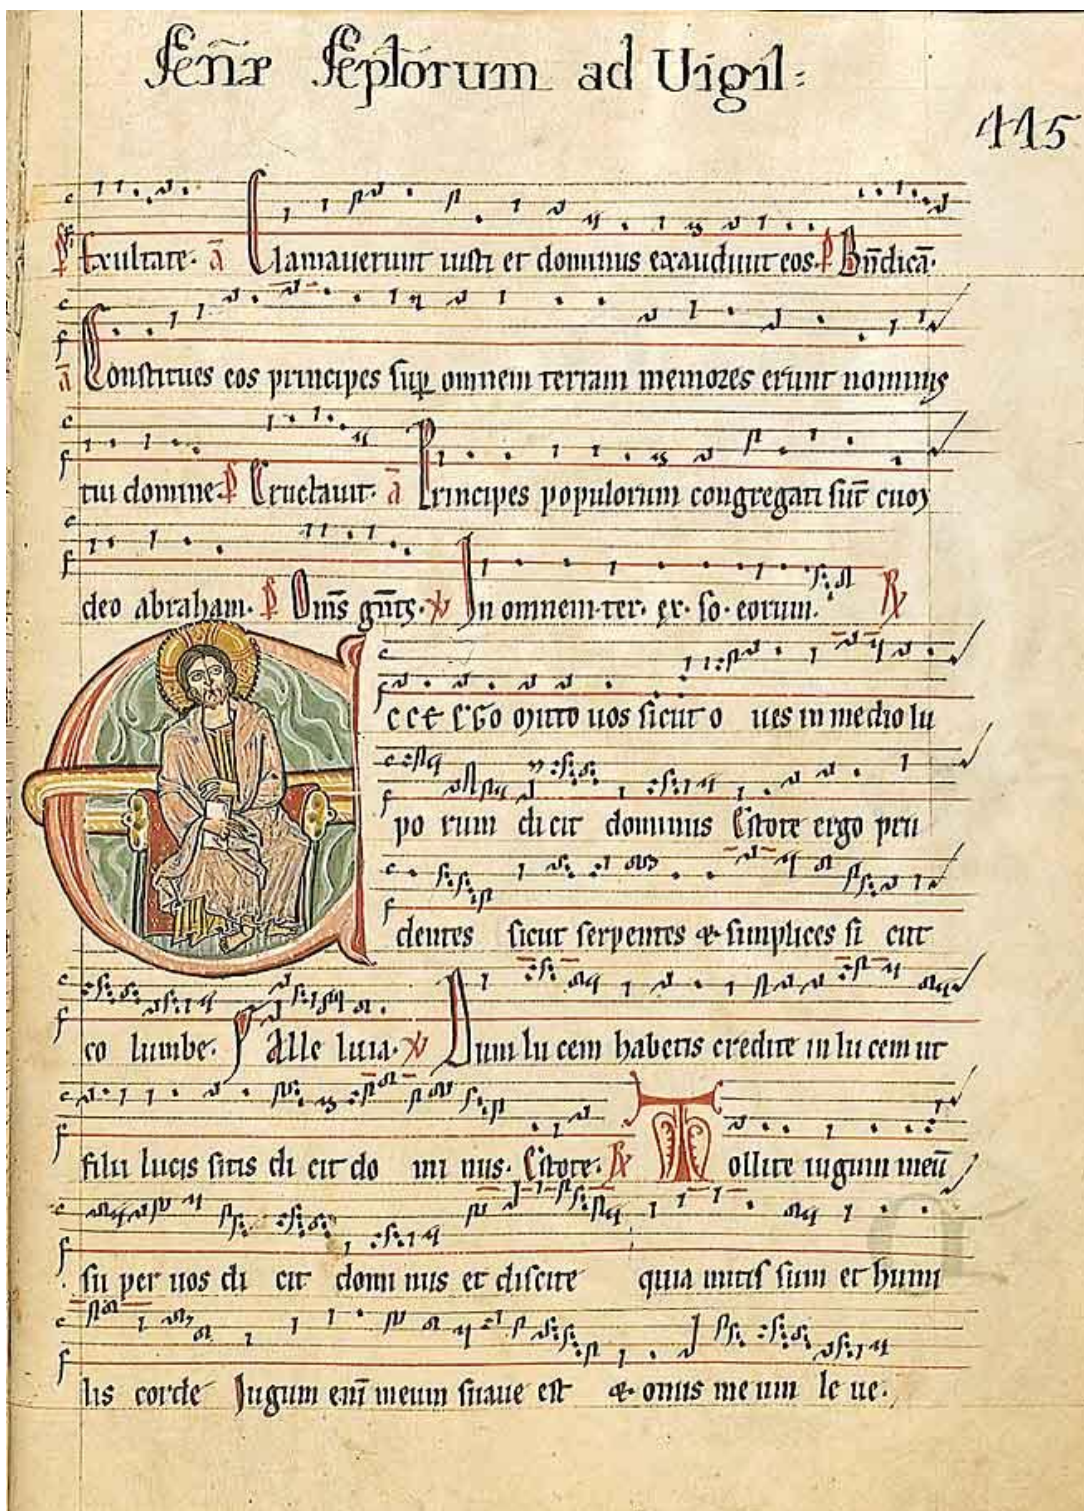 ad Uigil:
115
Exultate. a Clamauerunt iusti et dominus exaudiuit eos. P Bn̄dicā.
a Constitues eos principes sup omnem terram memores erunt nominis
tui domine. P Eructauit. a Principes populorum congregati sūt cum
deo abraham. P Om̄s gn̄ts. V In omnem. ter. ex. so. eorum. R
ECCE EGO mitto uos sicut o ues in medio lu
po rum dicit dominus Estote ergo pru
dentes sicut serpentes & simplices si cut
co lumbe. Alle luia. V Dum lu cem habetis credite in lu cem ut
filii lucis sitis di cit do mi nus. Estote. R Tollite iugum meū
su per uos di cit domi nus et discite quia mitis sum et humi
lis corde Iugum enī meum suaue est & onus me um le ue.